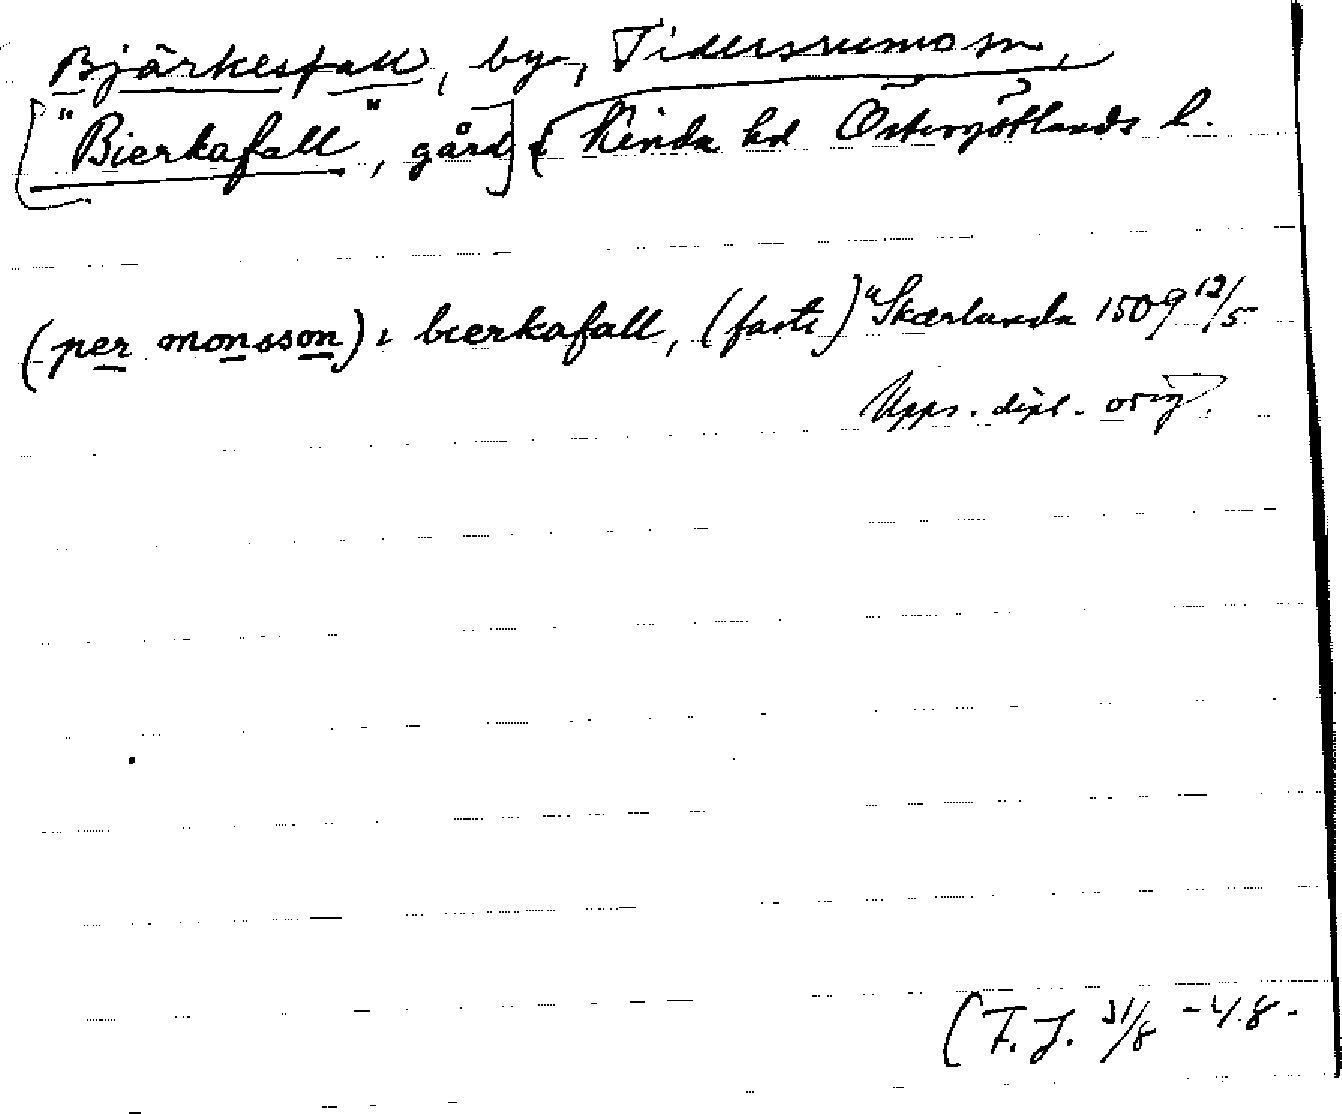 Bjärkesfall, by, Tidersrums sn,
["Bierkafall", gård] Kinda hd Östergötlands l.
(per monsson) i bierkafall, (faste) "Skærlunda 1509 12/5
Upps. dipl. orig.
(F. J. 31/8 -48-